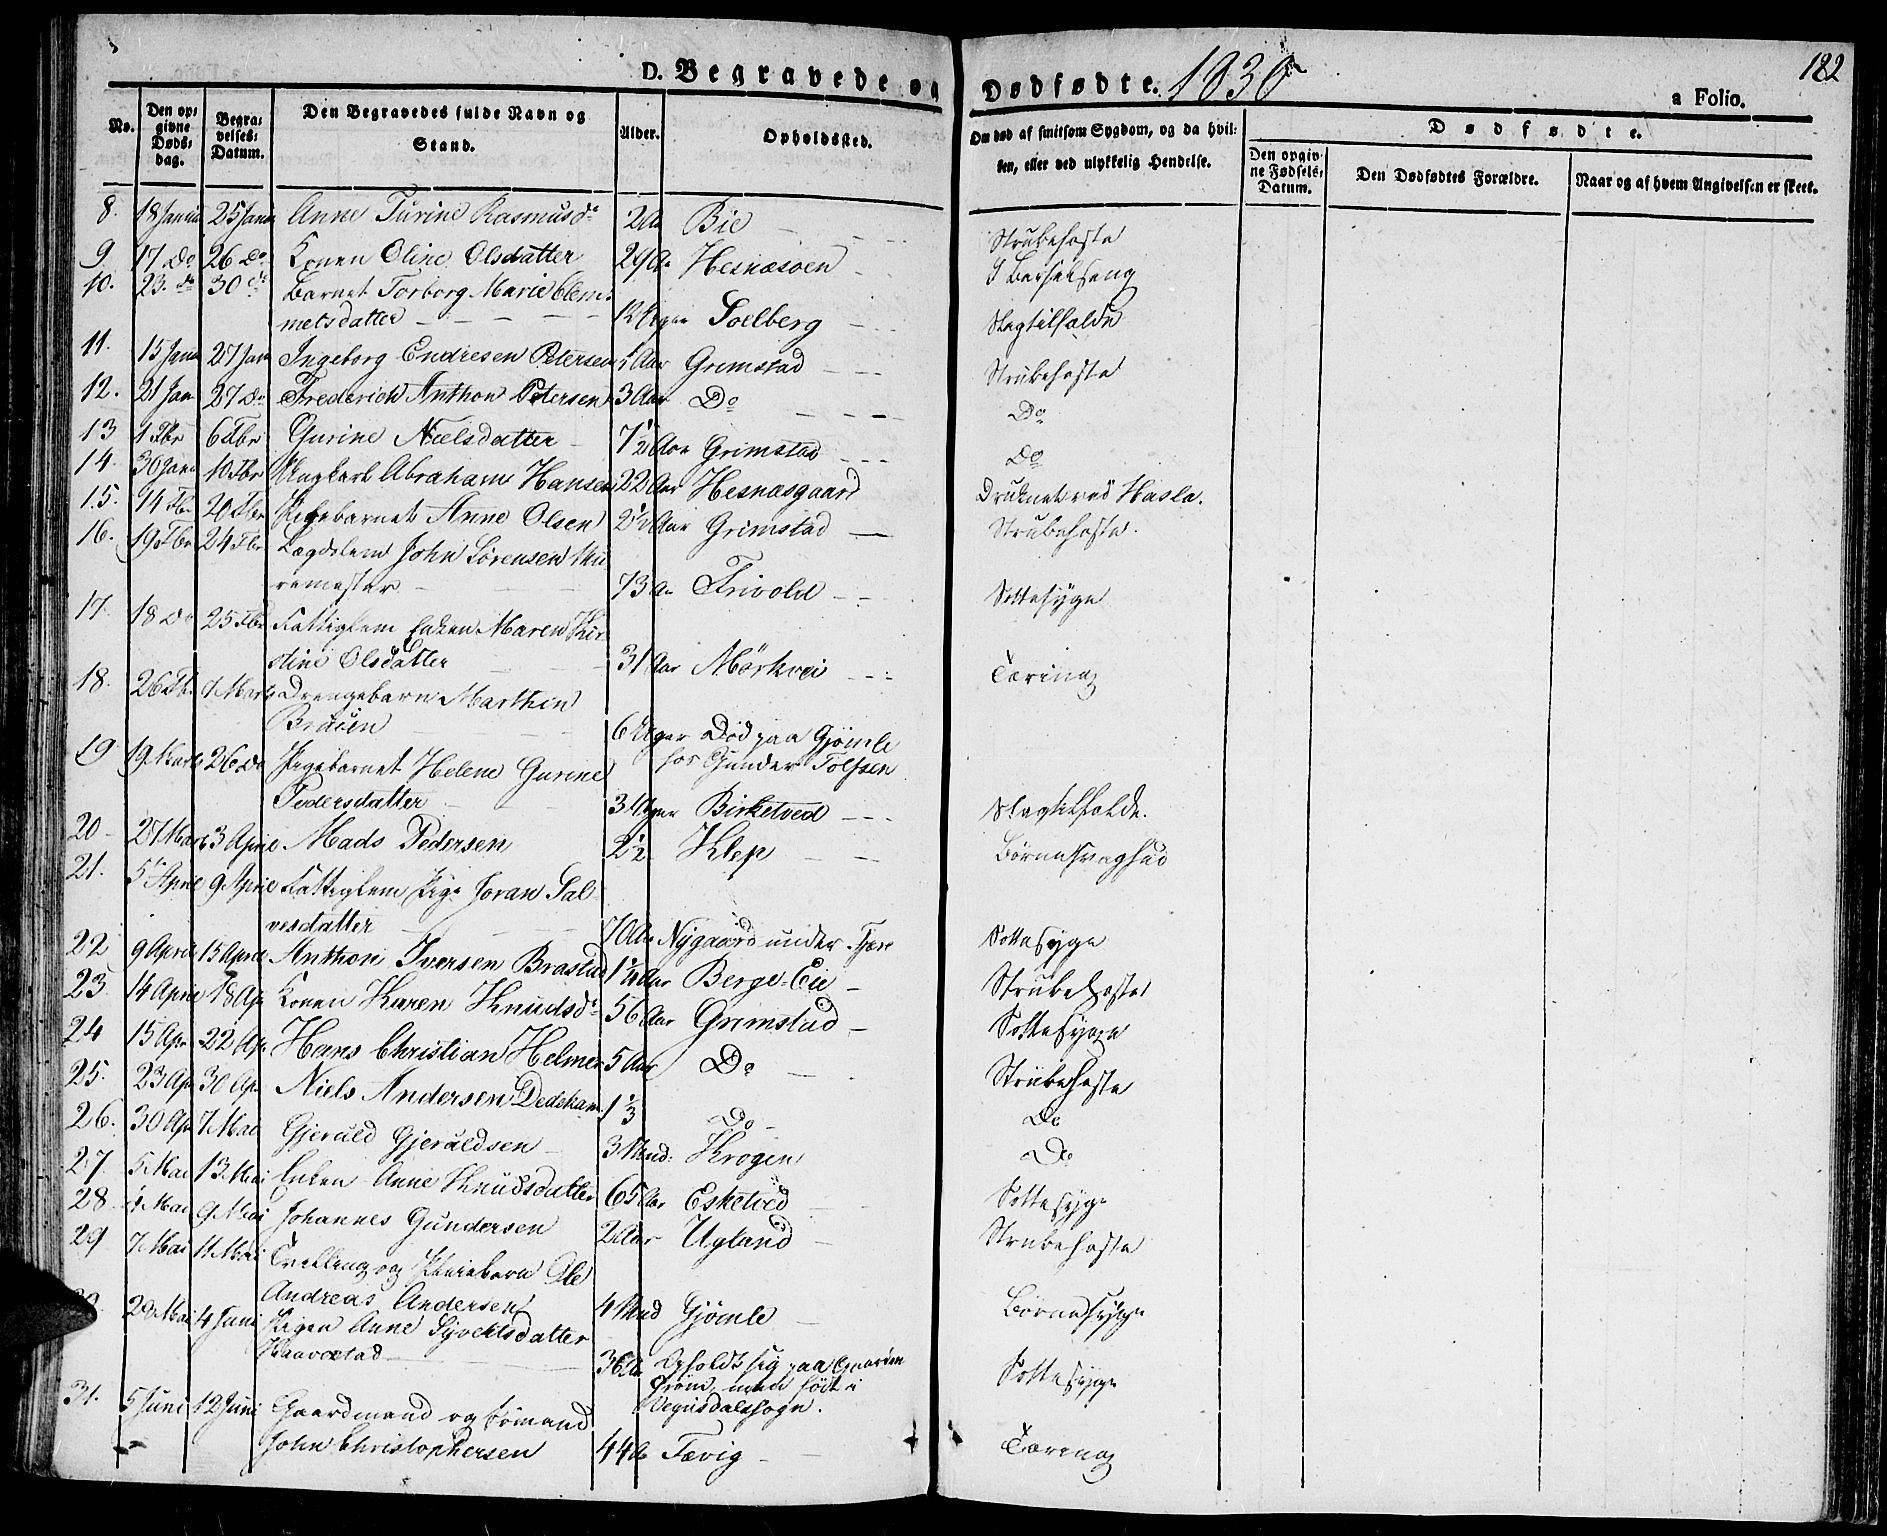 182
D. Begravede og Dødfødte. 1836
a Folio.
No.
Den op-
givne
Døds-
dag.
Begra-
velses-
Datum.
Den Begravedes fulde Navn og
Stand.
Alder.
Opholdssted.
Om død af smitsom Sygdom, og da hvil-
ken, eller ved ulykkelig Hendelse.
Dødfødte.
Den opgiv-
ne Fødsels-
Datum.
Den Dødfødtes Forældre.
Naar og af hvem Angivelsen er skeet.
8. 18 Januar 25 Janr Anne Turine Rasmusdr 2 Aar Bie Strubehoste
9. 17 Do 26 Do Konen Oline Olsdatter 29 Aar Hesnæsøen I Barselseng
10. 23. do 30 do Barnet Torborg Marie Clem-
metsdatter 12 Uger Soelberg Slagtilfælde
11. 15 Janr 27 Jan Ingeborg Endresen Petersen 5 Aar Grimstad Strubehoste
12. 21 Jan 27 Do Frederich Anthon Petersen 3 Aar Do Do
13 1 Fbr 6 Fbr Gurine Nielsdatter 7½ Aar Grimstad Do
14. 30 Janr 10 Fbr Ungkarl Abraham Hansen 22 Aar Hesnæsgaard Druknet ved Hasla.
15. 14 Fbr 20 Fbr Pigebarnet Anne Olsen 2½ Aar Grimstad Strubehoste.
16. 19 Fbr 24 Fbr Lægdslem John Sørensen Mu-
remester 73 Aar Frivold Sottesyge
17. 18 Do 25 Fbr Fattiglem Enken Maren Kir-
stine Olsdatter 31 Aar Mørkvei Tæring
18. 26 Fb. 7 Marts Drengebarn Marthin
Bruun 6 Uger Død paa Gjømle
hos Gunder Tolfsen
19 19 Marts 26 Do Pigebarnet Helene Gurine
Pedersdatter 3 Uger Birketved Slagtilfælde.
20 27 Marts 3 April Mads Pedersen 2½ Klep Børnesvaghed
21. 5 April 9 April Fattiglem Pige Joran Sal-
vesdatter 70 Aar Nygaard under Fjære Sottesyge
22 9 April 15 April Anthon Iversen Brastad 1¼ Aar Berge-Eie Strubehoste
23 14 April 18 Ap Konen Karen Knudsdr 56 Aar Grimstad Sottesyge
24 15 Apr 22 Ap Hans Christian Helmer 5 Aar Do Strubehoste
25. 23 Ap 30 Ap Niels Andersen Dedekam 1⅓ Do Do
26. 30 Ap 7 Mai Gjeruld Gjeruldsen 3 Mnd: Krogen Do
27 5 Mai 13 Mai Enken Anne Knudsdatter 65 Aar Esketved Sottesyge
28 4 Mai 9 Mai Johannes Gundersen 2 Aar Ugland Strubehoste
29 7 Mai 11 Mai Tvilling og Pleiebarn Ole
Andreas Andersen 4 Mnd Gjømle Børnesyge
29 Mai 4 Juni Pigen Anne Sjovelsdatter
Haavestad 36 Aar Opholdt sig paa
født i
Vegusdalssogn. Sottesyge
31. 5 Juni 12 Juni Gaardmand og Sømand
John Christophersen 44 Aar Fævig Tæring